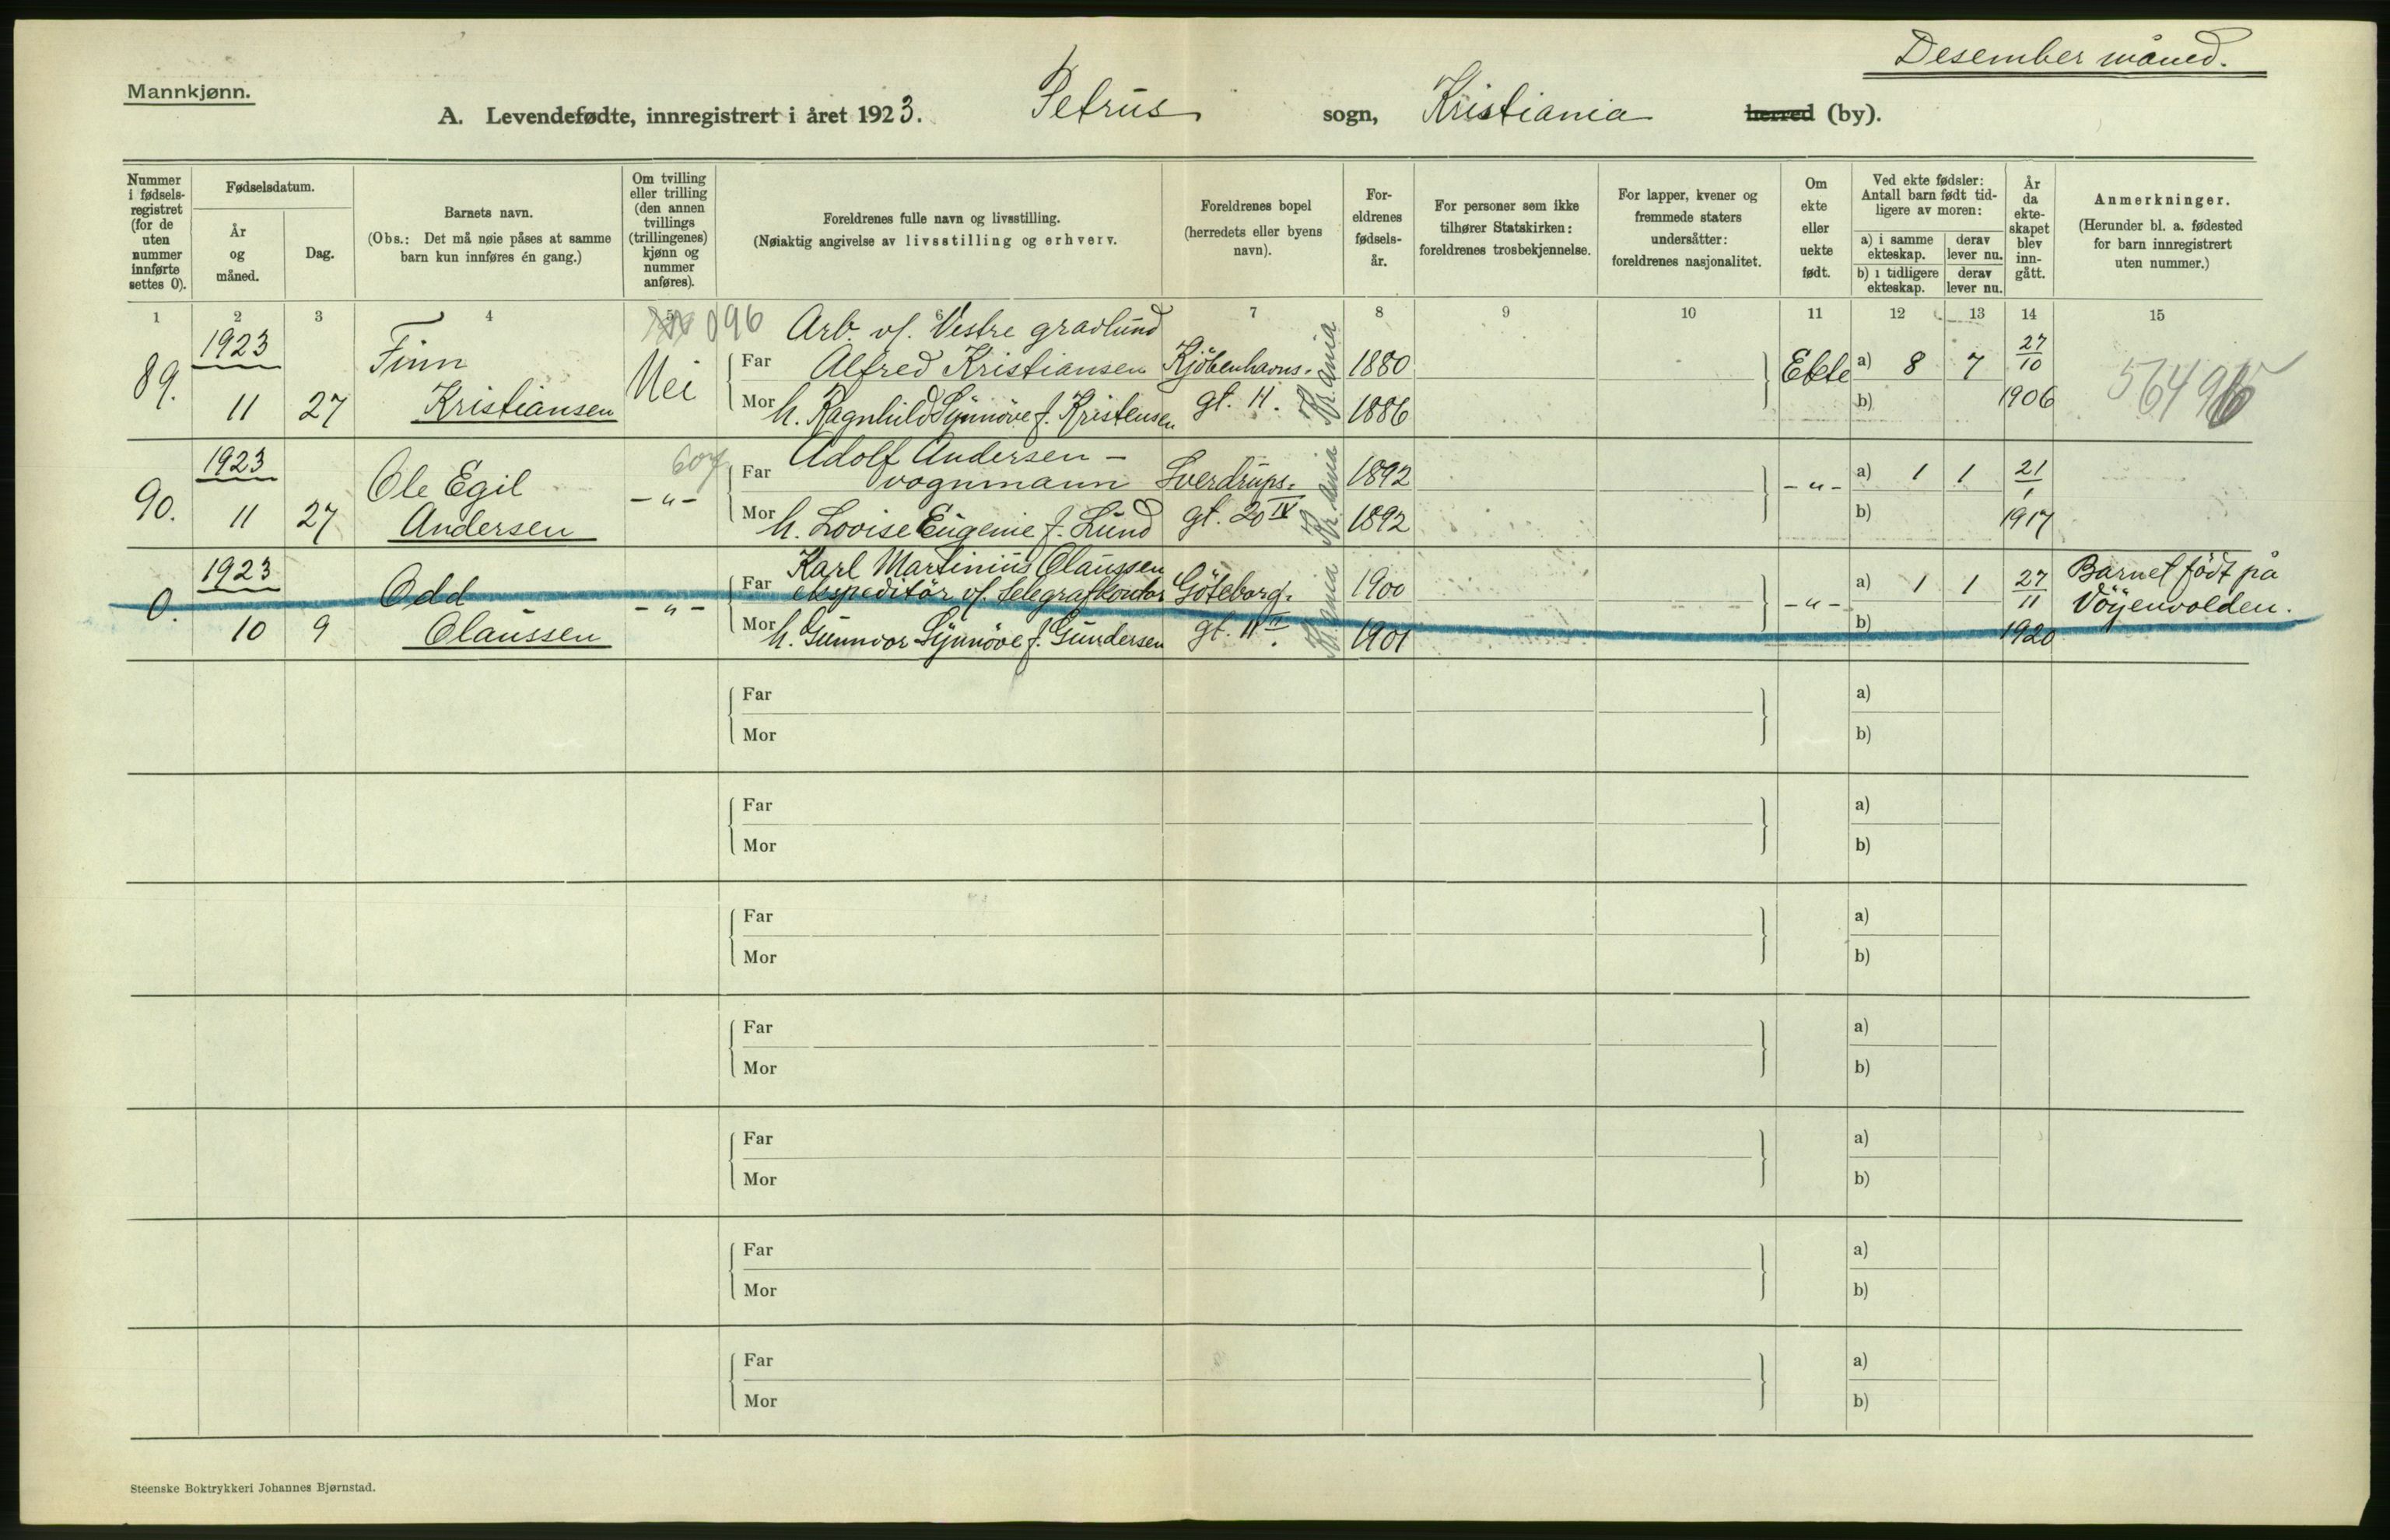 Desember måned.
Mannkjønn.
A. Levendefødte, innregistrert i året 1923. Petrus sogn, Kristiania herred (by).
Nummer i fødsels-registret (for de uten nummer innførte settes 0).
Fødselsdatum.
År og måned.
Dag.
Barnets navn.
(Obs.: Det må nøie påses at samme barn kun innføres én gang.)
Om tvilling eller trilling (den annen tvillings (trillingenes) kjønn og nummer anføres).
Foreldrenes fulle navn og livsstilling.
(Nøiaktig angivelse av livsstilling og erhverv.
Foreldrenes bopel (herredets eller byens navn).
For-eldrenes fødsels-år.
For personer som ikke tilhører Statskirken: foreldrenes trosbekjennelse.
For lapper, kvener og fremmede staters undersåtter: foreldrenes nasjonalitet.
Om ekte eller uekte født.
Ved ekte fødsler: Antall barn født tid-ligere av moren:
a) i samme ekteskap. derav lever nu.
b) i tidligere ekteskap. derav lever nu.
År da ekte-skapet blev inn-gått.
Anmerkninger.
(Herunder bl. a. fødested for barn innregistrert uten nummer.)
1 2 3 4 5 6 7 8 9 10 11 12 13 14 15
096 Arb. v/. Vestre gravlund
1923 Finn Far Alfred Kristiansen Kjöbenhavns- 1880 Ekte a) 8 7 27/10
89. 11 27 Kristiansen Nei Mor h. Ragnhild Synnöve f. Kristensen gt. 11. Kr.ania 1886 b) 1906
1923 607 Adolf Andersen –
Ole Egil Far vognmann Sverdrups- 1892 -"- a) 1 1 21/1
90. 11 27 Andersen -"- Mor h. Lovise Eugenie f. Lund gt. 20 IV Kr.ania 1892 b) 1917
1923 Karl Martinius Olaussen Barnet födt på
Odd Far ekspeditör v/. telegrafkontor Göteborg- 1900 a) 1 1 27/11 Vöyenvolden.
0. 10 9 Olaussen -"- Mor h. Gunnvor Synnöve f. Gundersen gt. 11 Kr.ania 1901 -"- b) 1920
Far a)
Mor b)
Far a)
Mor b)
Far a)
Mor b)
Far a)
Mor b)
Far a)
Mor b)
Far a)
Mor b)
Far a)
Mor b)
Steenske Boktrykkeri Johannes Bjørnstad.